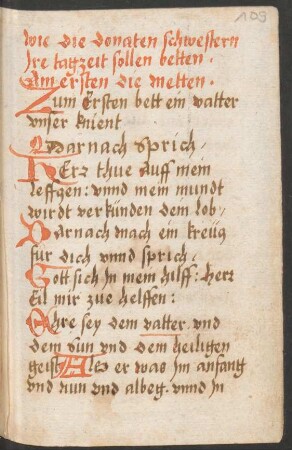 109
wie die donaten schwestern
Jre tagzeit sollen betten.
Am ersten die metten.
Zum Ersten bett ein vatter
vnser knient
Darnach Sprich,
HErr thue auff mein
leffzgen: vnnd mein mundt
wirdt verkünden dein lob,
Darnach mach ein kreütz
für dich vnnd sprich,
Gott sich Jn mein hilff: herr
Eil mir zue helffen:
Ehre sey dem vatter vnd
dem Sun vnd dem heiligen
geist Als er was Jm anfang
vnd nun vnd albeg. vnnd Jn